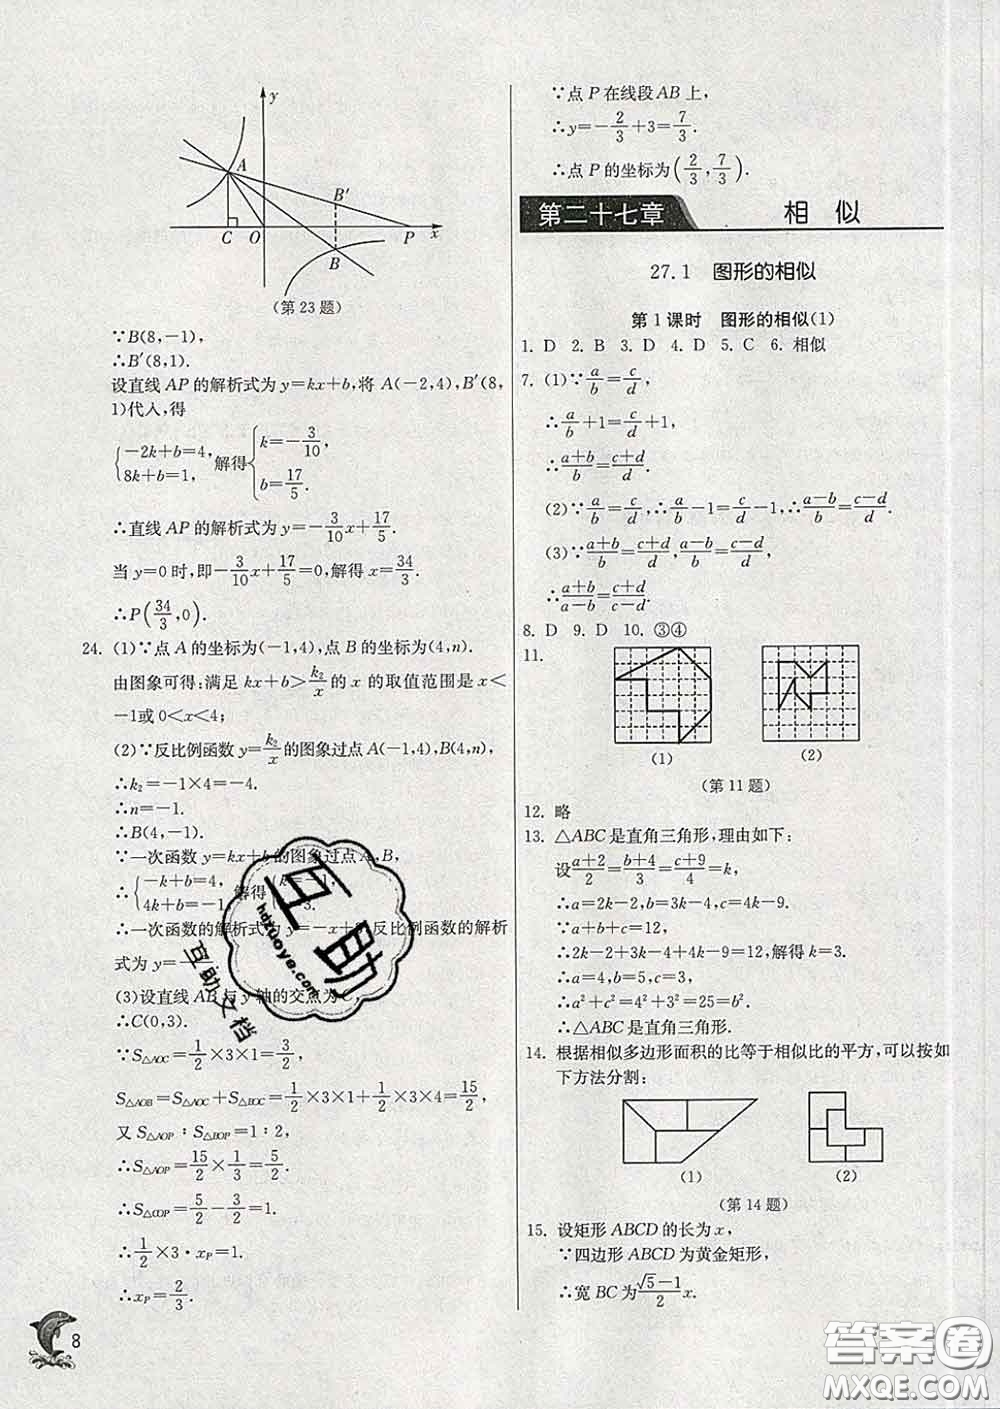 y
A
B′
C
O
P
x
B
(第23题)
∵B(8,-1),
∴B′(8,1).
设直线 AP 的解析式为 y=kx+b,将 A(-2,4),B′(8,
1)代入,得
{-2k+b=4, 8k+b=1, 解得 {k=-3/10, b=17/5.
∴直线 AP 的解析式为 y=-3/10x+17/5.
当 y=0 时,即-3/10x+17/5=0,解得 x=34/3.
∴P(34/3,0).
24. (1)∵点 A 的坐标为(-1,4),点 B 的坐标为(4,n).
由图象可得:满足 kx+b>k₂/x 的 x 的取值范围是 x<
-1或 0<x<4;
(2)∵反比例函数 y=k₂/x的图象过点 A(-1,4),B(4,n),
∴k₂=-1×4=-4.
∴n=-1.
∴B(4,-1).
∵一次函数 y=kx+b 的图象过点 A,B,
∴{-k+b=4, 4k+b=-1, 解得{k=-1,
∴一次函数的解析式为 y=-x+ 反比例函数的解析
式为 y=-
(3)设直线 AB 与 y 轴的交点为 C,
∴C(0,3).
∵S△AOC=1/2×3×1=3/2,
S△AOB=S△AOC+S△BOC=1/2×3×1+1/2×3×4=15/2,
又 S△AOP∶S△BOP=1∶2,
∴S△AOP=15/2×1/3=5/2.
∴S△COP=5/2-3/2=1.
∴1/2×3·xP=1.
∴xP=2/3.
8
∵点 P 在线段 AB 上,
∴y=-2/3+3=7/3.
∴点 P 的坐标为(2/3,7/3).
第二十七章 相 似
27.1 图形的相似
第1课时 图形的相似(1)
1. D 2. B 3. D 4. D 5. C 6. 相似
7. (1)∵a/b=c/d,
∴a/b+1=c/d+1,
∴(a+b)/b=(c+d)/d.
(2)∵a/b=c/d,∴a/b-1=c/d-1,∴(a-b)/b=(c-d)/d.
(3)∵(a+b)/b=(c+d)/d,(a-b)/b=(c-d)/d,
∴(a+b)/(a-b)=(c+d)/(c-d).
8. D 9. D 10. ③④
11.
(1)
(2)
(第11题)
12. 略
13. △ABC 是直角三角形,理由如下:
设(a+2)/2=(b+4)/3=(c+9)/4=k,
∴a=2k-2,b=3k-4,c=4k-9.
∵a+b+c=12,
∴2k-2+3k-4+4k-9=12,解得 k=3.
∴a=4,b=5,c=3.
∴a²+c²=4²+3²=25=b².
∴△ABC 是直角三角形.
14. 根据相似多边形面积的比等于相似比的平方,可以按如
下方法分割:
(1)
(2)
(第14题)
15. 设矩形 ABCD 的长为 x,
∵四边形 ABCD 为黄金矩形,
∴宽 BC 为(√5-1)/2x.
互助
hdzuoye.com
互助文档
答案卷
MXQE.COM